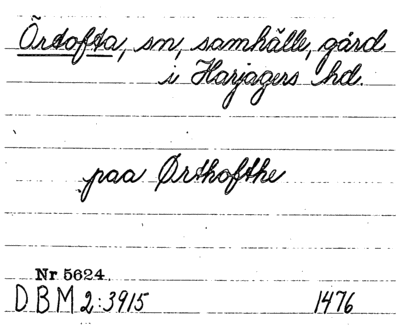 Örtofta, sn, samhälle, gård
i Harjagers hd.
paa Ørthofthe
Nr 5624.
DBM 2:3915 1476